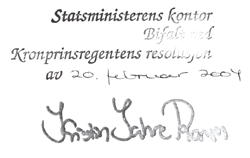 Statsministerens kontor
Bifalt ved
Kronprinsregentens resolusjon
av 20. februar 2004
Kristin Jahre Ramm